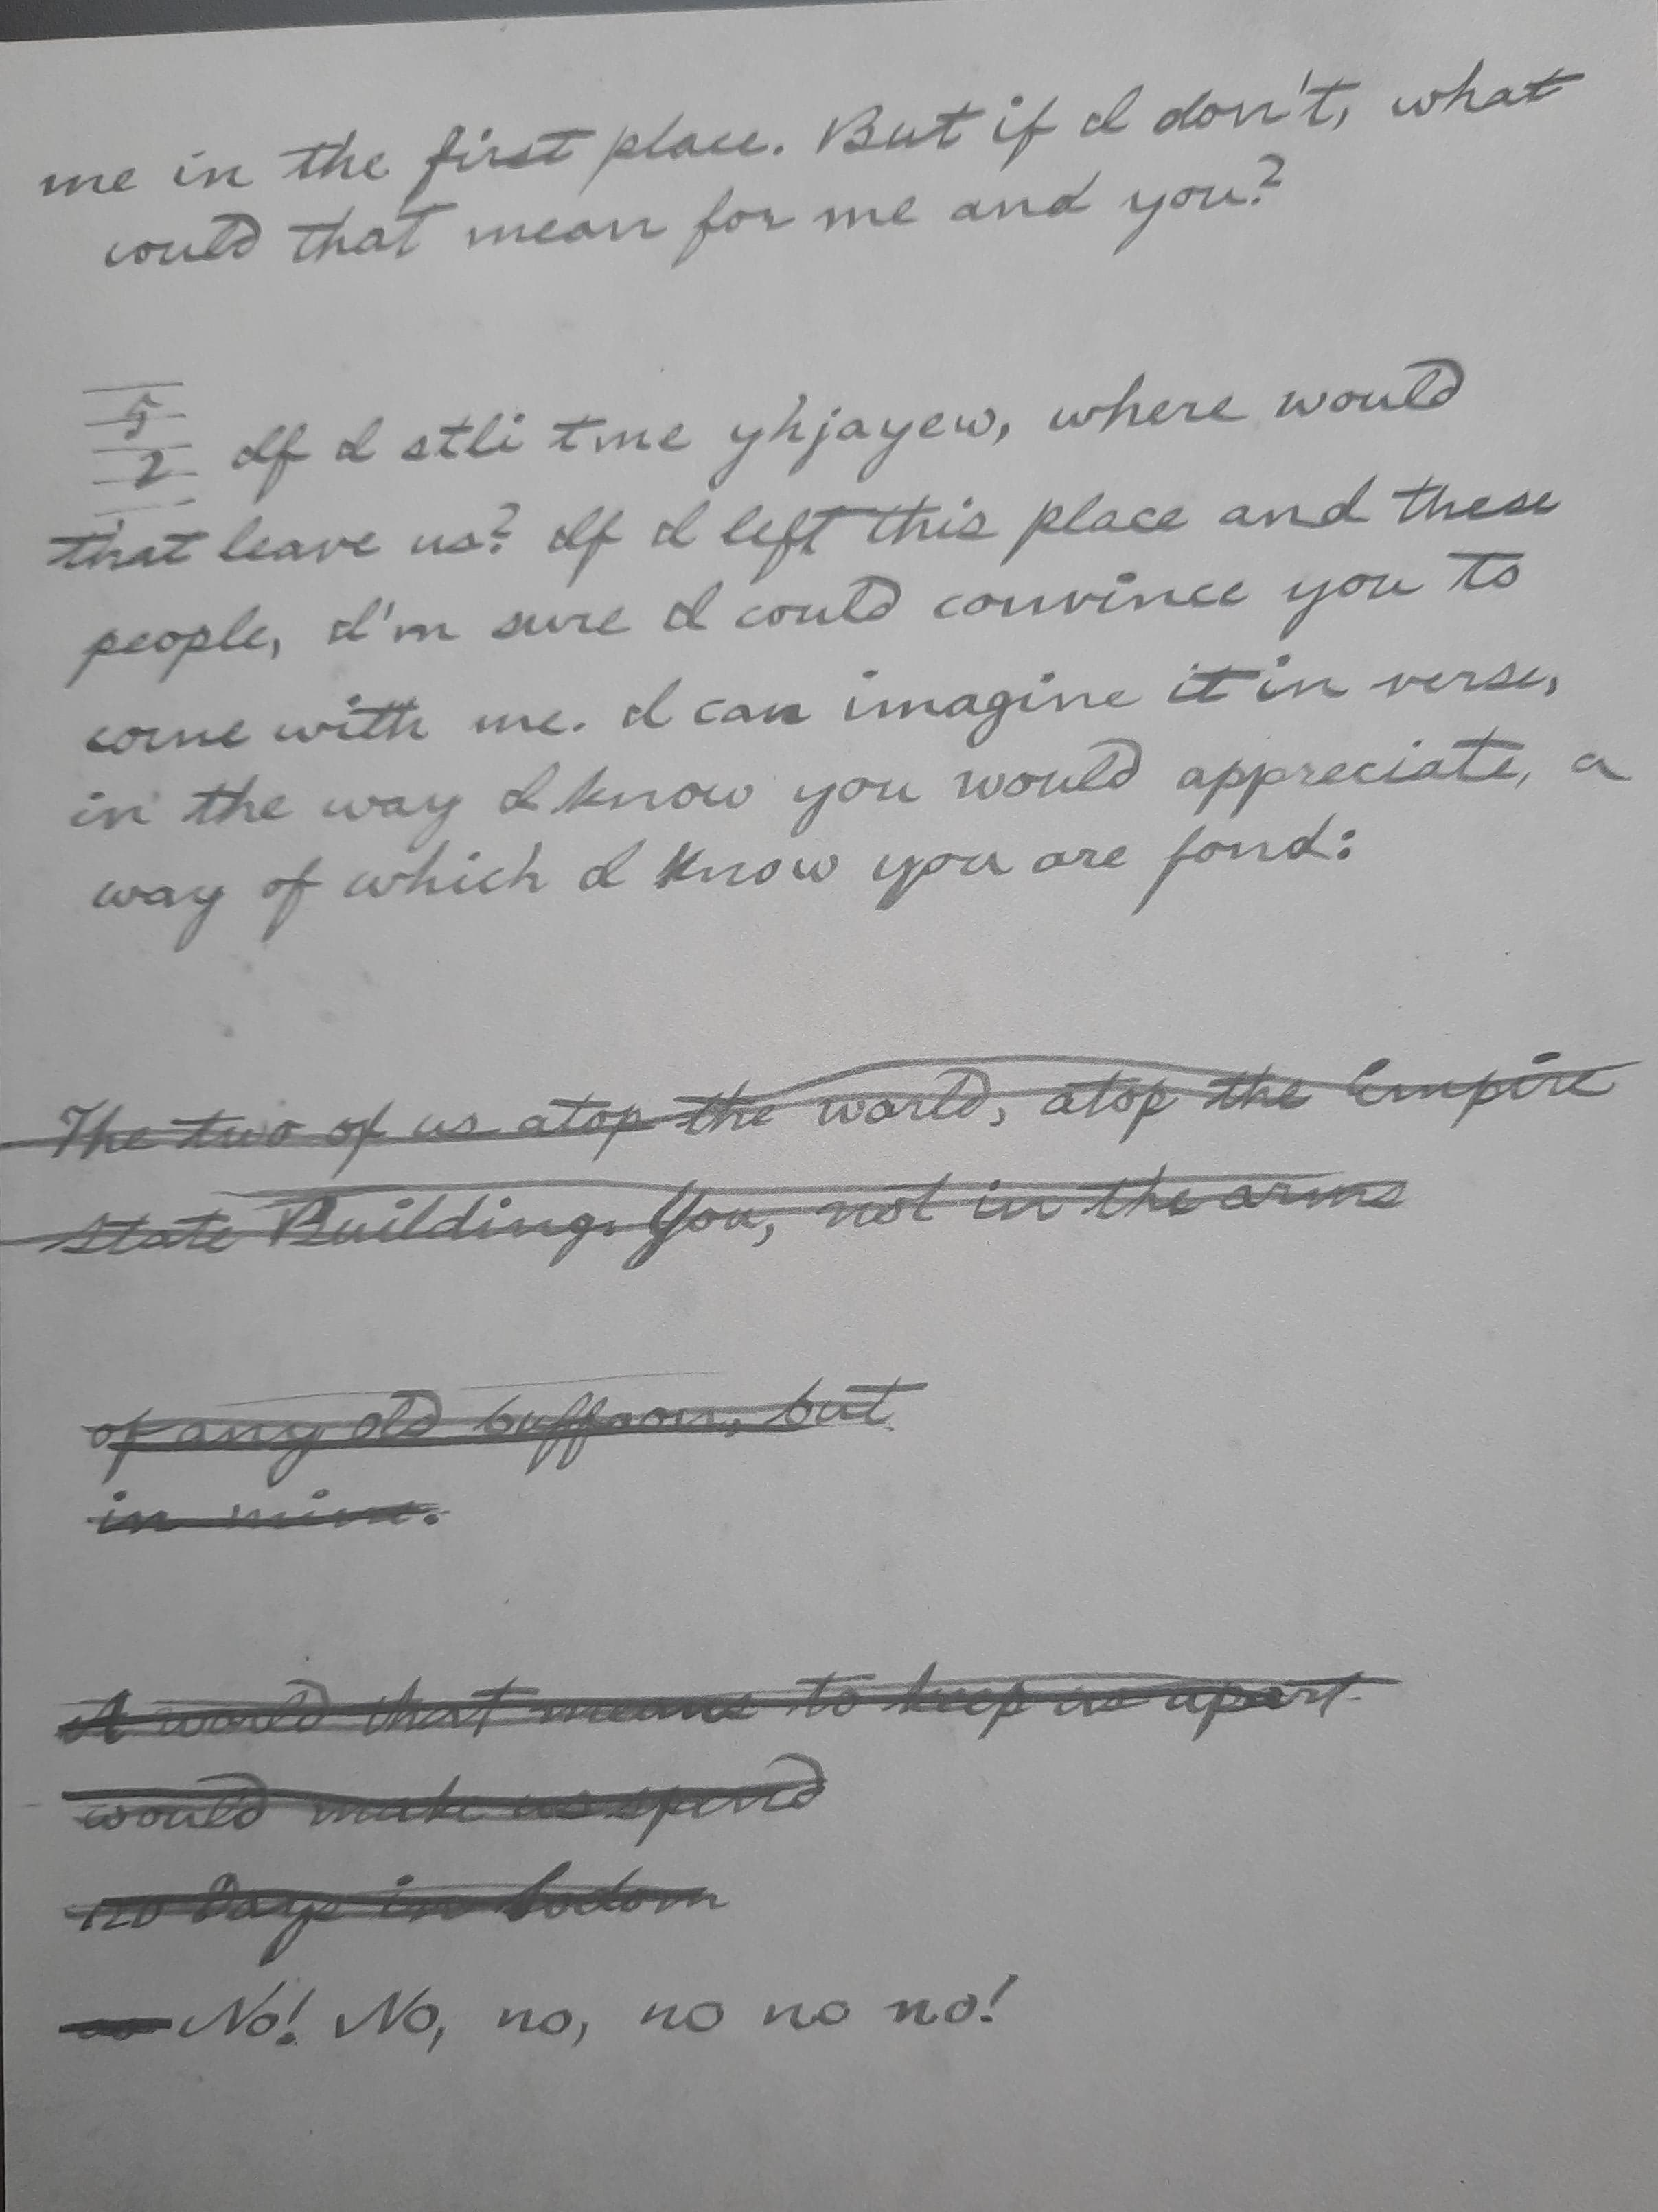 me in the first place. But if I don't, what
could that mean for me and you?
5
2 If I stli tme yhjayew, where would
that leave us? If I left this place and these
people, I'm sure I could convince you to
come with me. I can imagine it in verse,
in the way I know you would appreciate, a
way of which I know you are fond:
The two of us atop the world, atop the Empire
State Building. You, not in the arms
of any old buffoon, but
in mine.
A world that means to keep us apart
would make us spend
120 Days in Sodom
No! No, no, no no no!